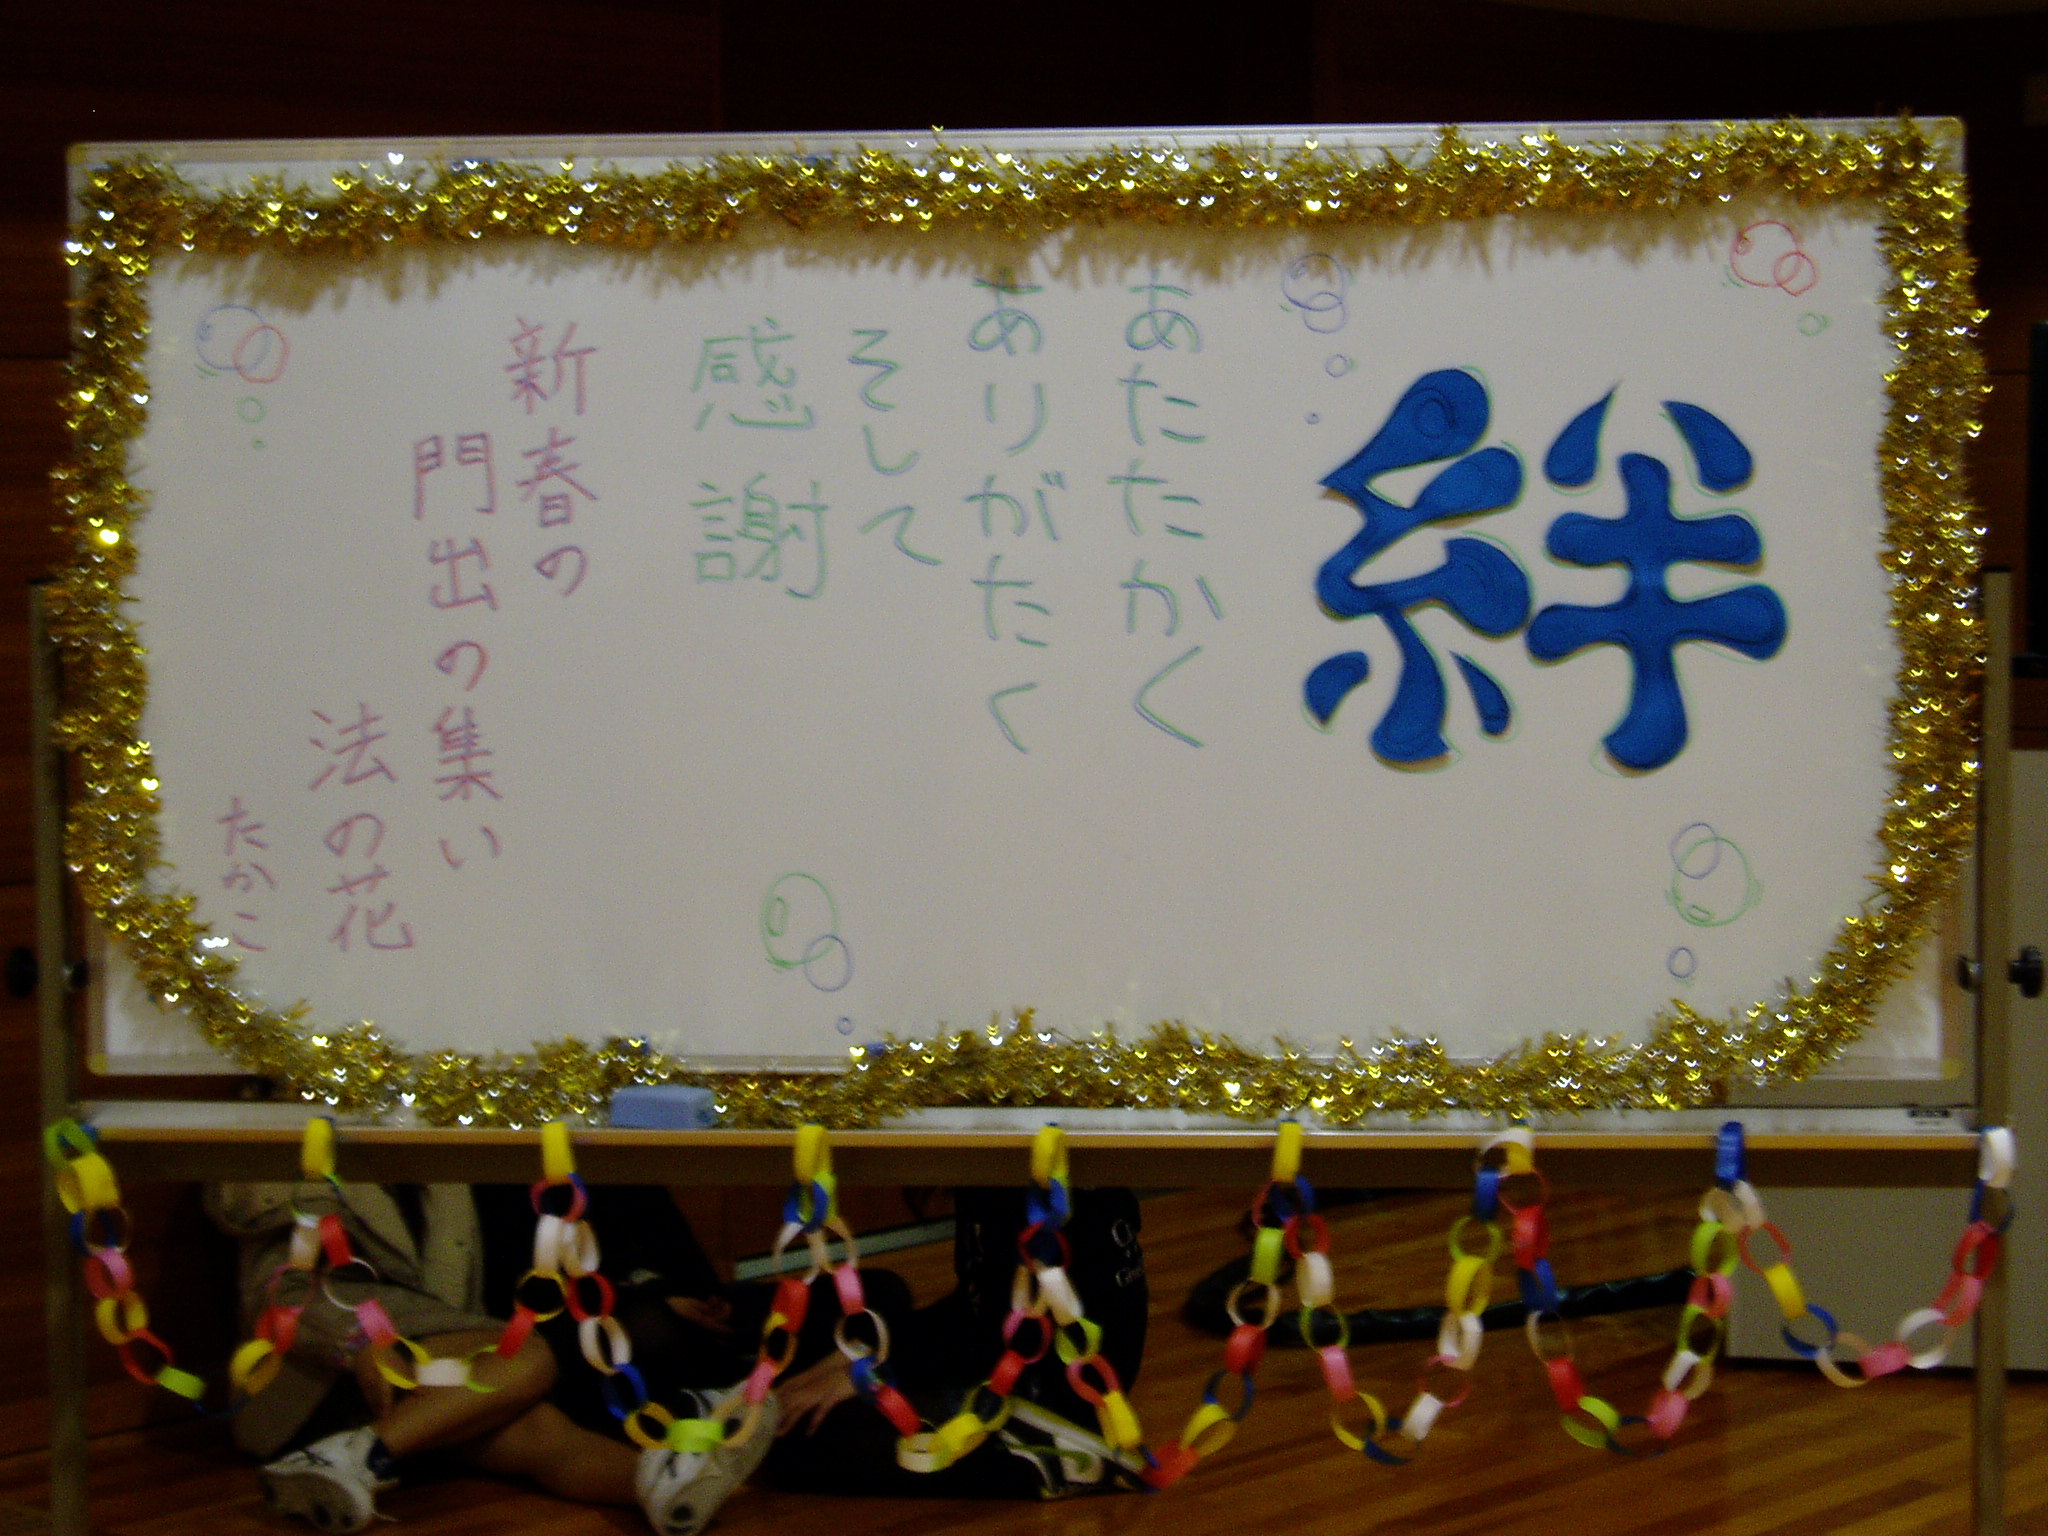 絆
あたたかく
ありがたく
そして
感謝
新春の
門出の集い
法の花
たかこ